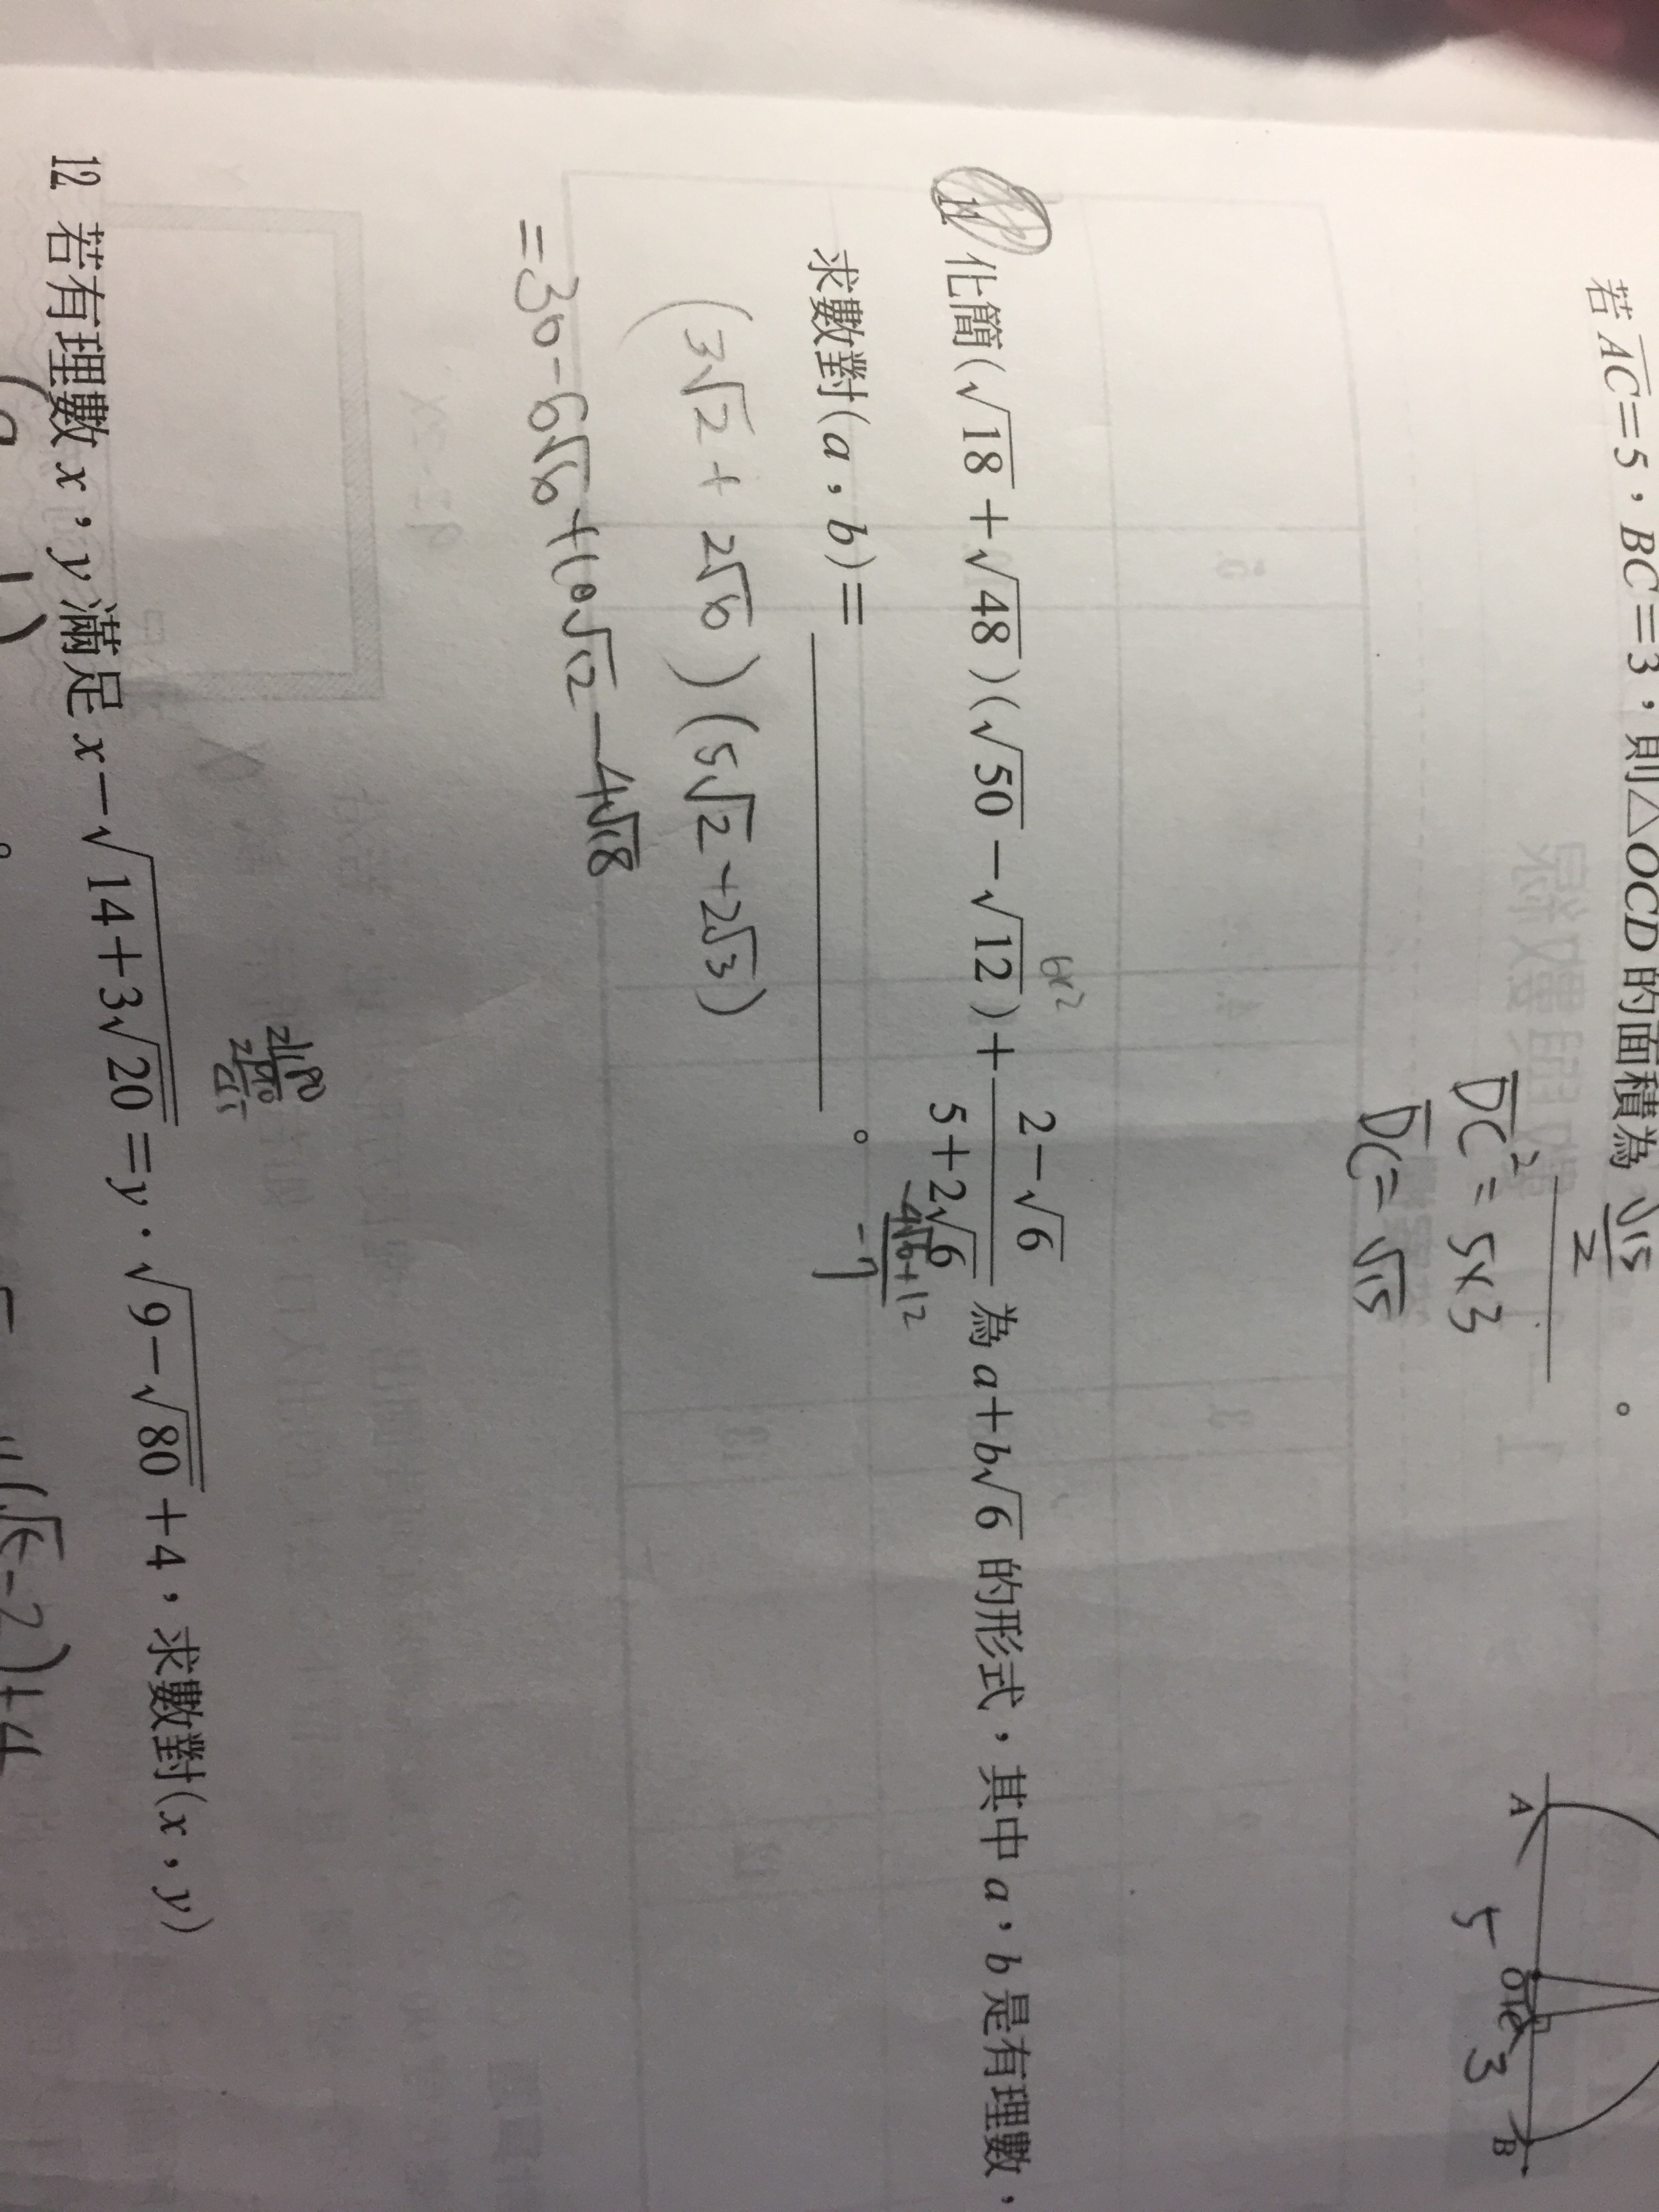 若 AC=5，BC=3，則△OCD 的面積為 √15/2 。
DC² = 5×3
DC = √15
A 5 O 3 B
11. 化簡(√18+√48)(√50−√12)+(2−√6)/(5+2√6) 為 a+b√6 的形式，其中 a，b 是有理數，
6×2
求數對(a，b)=＿＿＿＿＿＿。
(3√2 + 2√6)(5√2 - 2√3)
=30-6√6+10√12-4√18
12. 若有理數 x，y 滿足 x−√(14+3√20)=y·√(9−√80)+4，求數對(x，y)
。